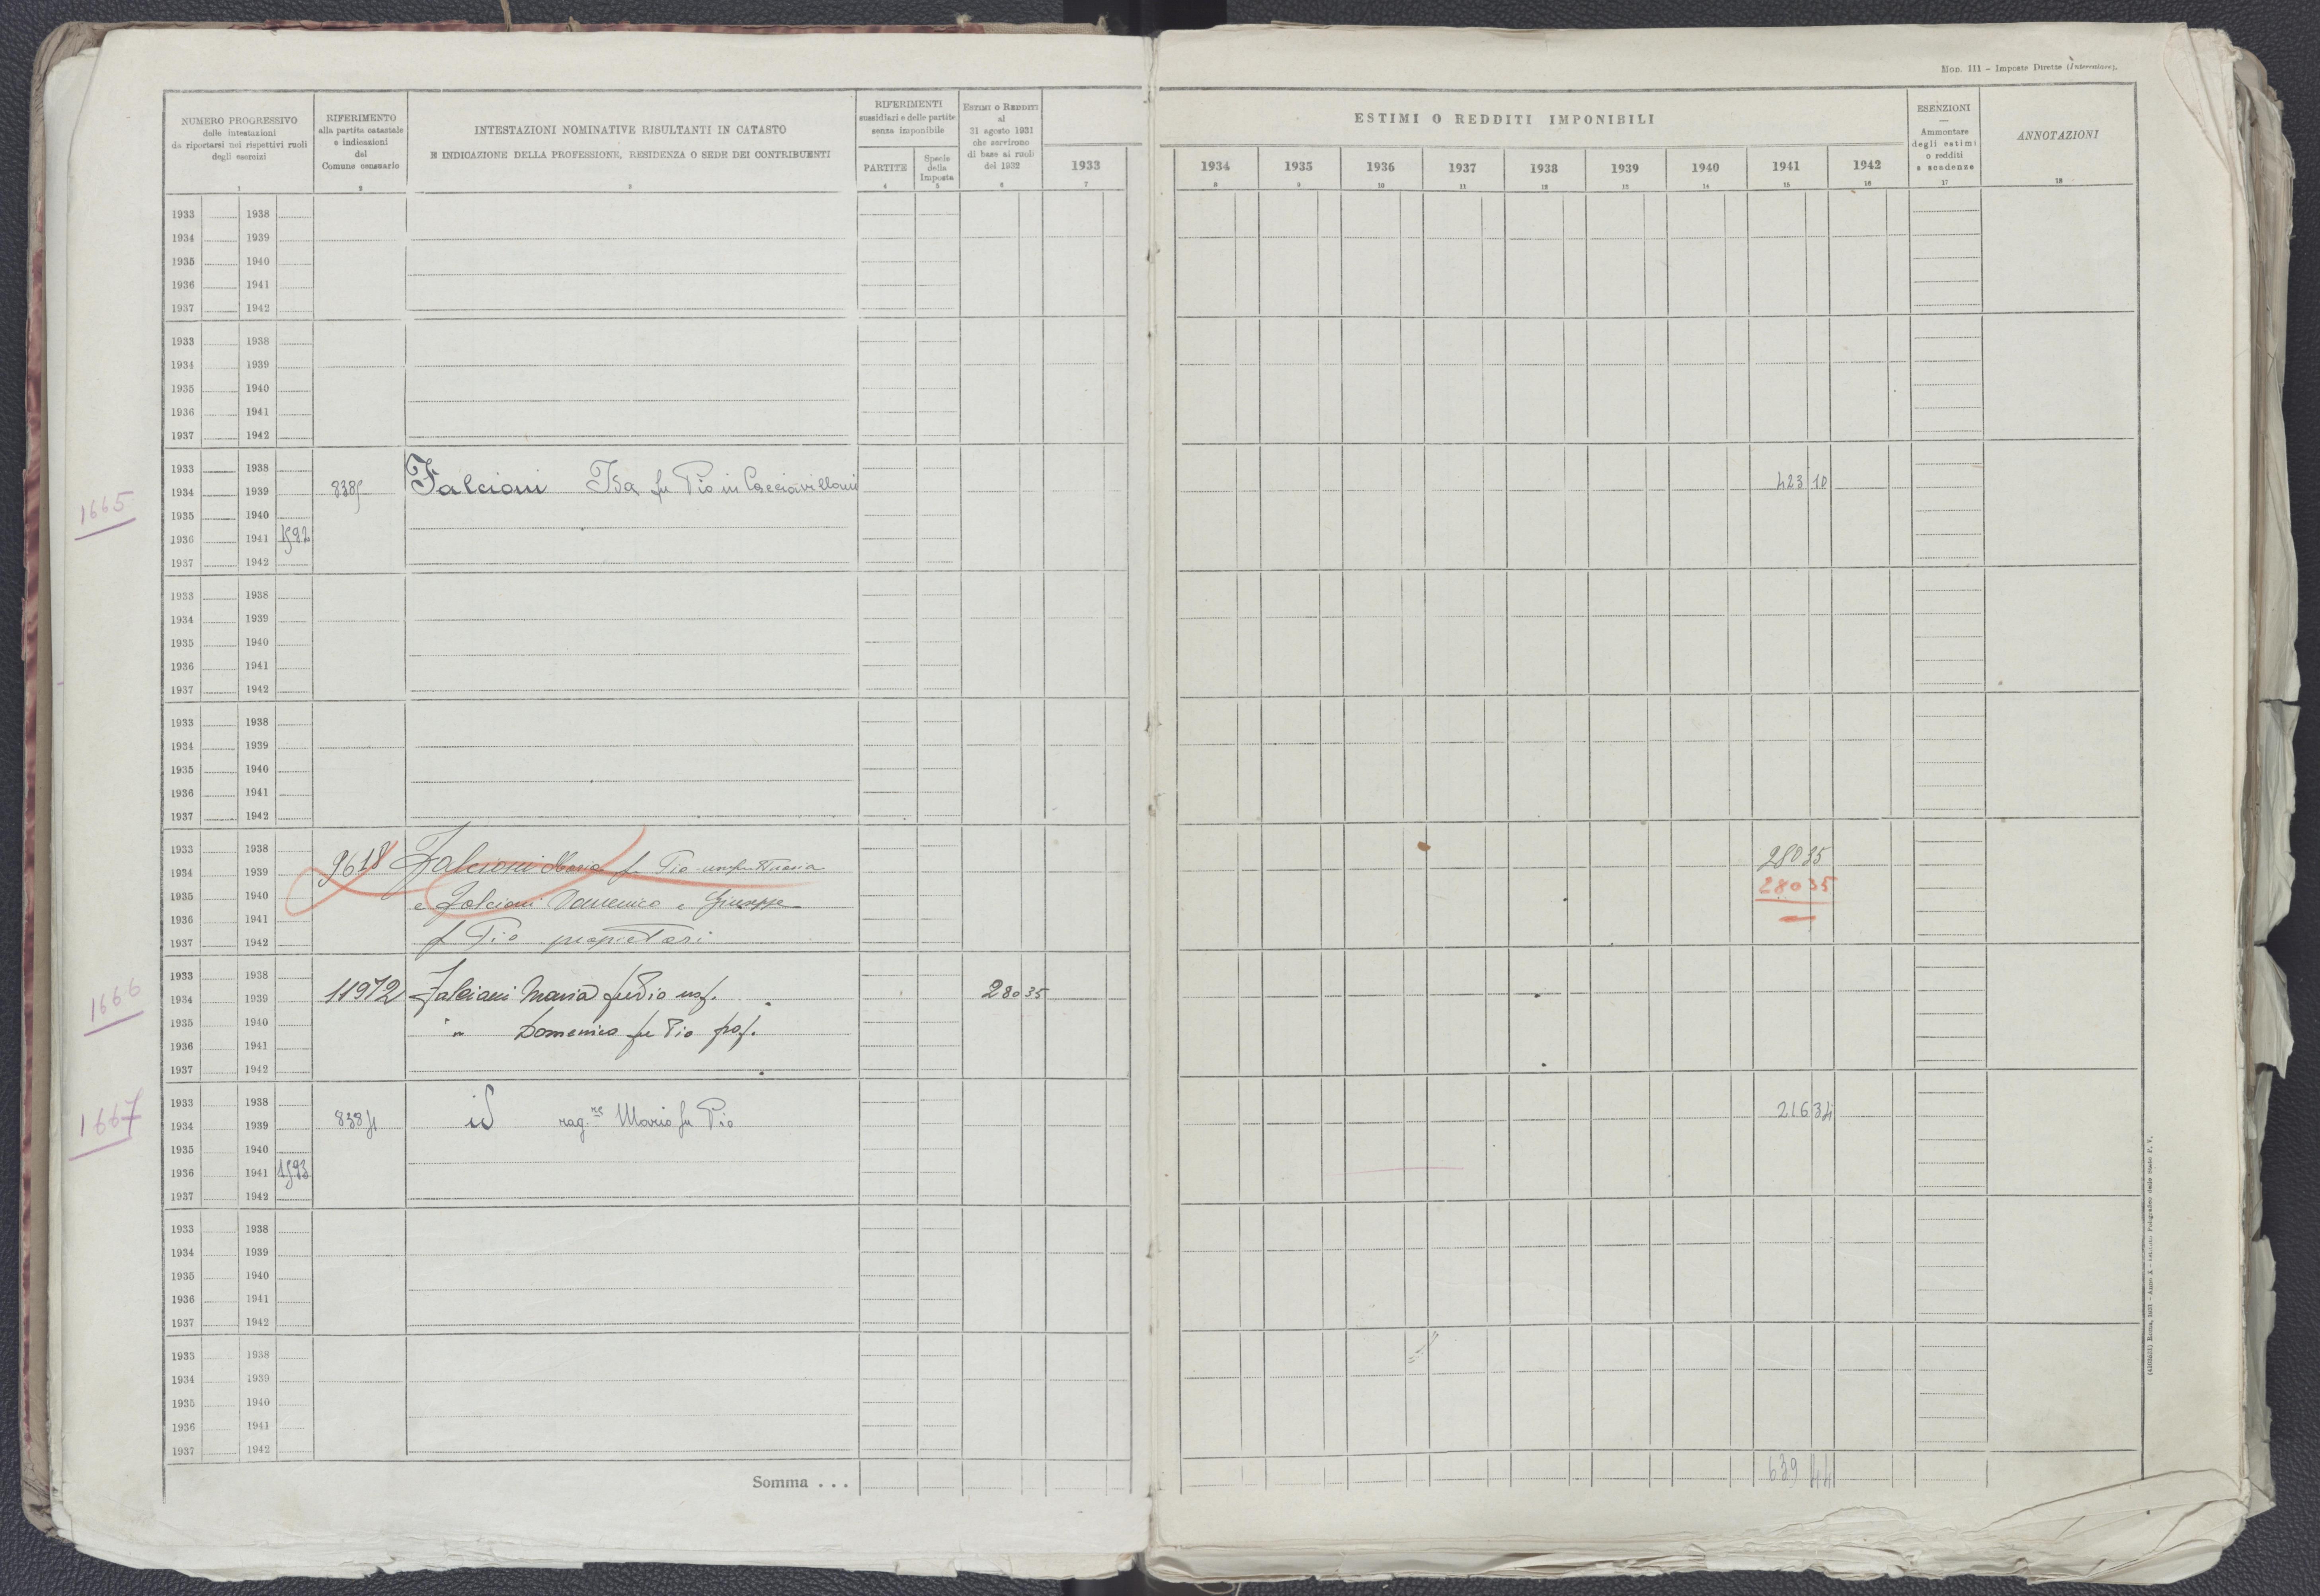 Mod. 111 - Imposte Dirette (Intercalare).
NUMERO PROGRESSIVO
delle intestazioni
da riportarsi nei rispettivi ruoli
degli esercizi
1
RIFERIMENTO
alla partita catastale
e indicazioni
del
Comune censuario
2
INTESTAZIONI NOMINATIVE RISULTANTI IN CATASTO
E INDICAZIONE DELLA PROFESSIONE, RESIDENZA O SEDE DEI CONTRIBUENTI
3
RIFERIMENTI
sussidiari e delle partite
senza imponibile
PARTITE
4
Specie
della
Imposta
5
Estimi o Redditi
al
31 agosto 1931
che servirono
di base ai ruoli
del 1932
6
ESTIMI O REDDITI IMPONIBILI
1933 1934 1935 1936 1937 1938 1939 1940 1941 1942
7 8 9 10 11 12 13 14 15 16
ESENZIONI
Ammontare
degli estimi
o redditi
e scadenze
17
ANNOTAZIONI
18
1933 1938
1934 1939
1935 1940
1936 1941
1937 1942
1933 1938
1934 1939
1935 1940
1936 1941
1937 1942
1933 1938
1934 1939 8385 Falcioni Isa fu Pio in Cacciavillani 423 10
1665
1935 1940
1936 1941 1592
1937 1942
1933 1938
1934 1939
1935 1940
1936 1941
1937 1942
1933 1938
1934 1939
1935 1940
1936 1941
1937 1942
1933 1938 28035
1934 1939 9618 Falcioni Maria fu Pio usufruttuaria
28035
1935 1940 e Falcioni Domenico e Giuseppe
1936 1941
1937 1942 f Pio proprietari
1933 1938
1934 1939 11972 Falcioni Maria fu Pio usf. 28035
1666
1935 1940 " Domenico fu Pio prop.
1936 1941
1937 1942
1933 1938
1934 1939 8384 id rag.re Mario fu Pio 216 34
1667
1935 1940
1936 1941 1593
1937 1942
1933 1938
1934 1939
1935 1940
1936 1941
1937 1942
1933 1938
1934 1939
1935 1940
1936 1941
1937 1942
Somma . . . 639 44